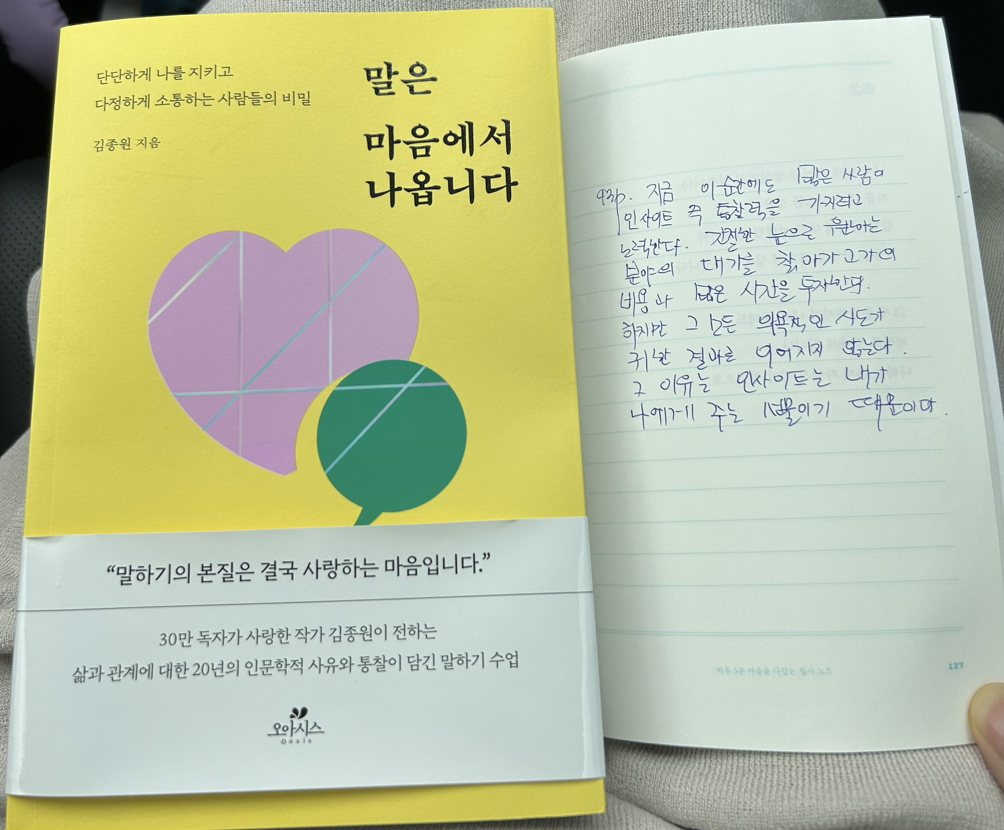 단단하게 나를 지키고
다정하게 소통하는 사람들의 비밀
김종원 지음
말은
마음에서
나옵니다
“말하기의 본질은 결국 사랑하는 마음입니다.”
30만 독자가 사랑한 작가 김종원이 전하는
삶과 관계에 대한 20년의 인문학적 사유와 통찰이 담긴 말하기 수업
오아시스
Oasis
93p. 지금 이 순간에도 많은 사람이
인사이트 즉 통찰력을 가지려고
노력한다. 간절한 눈으로 원하는
분야의 대가를 찾아가 고가의
비용과 많은 시간을 투자한다.
하지만 그 모든 의욕적인 시도가
귀한 결과로 이어지지 않는다.
그 이유는 인사이트는 내가
나에게 주는 선물이기 때문이다.